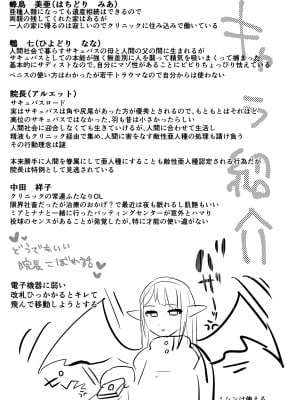 キャラ紹介
蜂鳥　美亜(はちどり　みあ)
亜種人類になっても遺産相続はできるので
両親の残してくれた家はあるが
一人の家に帰るのは寂しいのでクリニックに住み込みで働いている
鵯　七(ひよどり　なな)
人間社会で暮らすサキュバスの母と人間の父の間に生まれるが
サキュバスとしての本能が強く無差別に人を襲って精気を吸いまくって捕まった
基本的にサディストなので、自分にマゾ性があることにビビりちょっぴり怯えている
ペニスの使い方はわかるが若干トラウマなので自分からは使わない
院長(アルエット)
サキュバスロード
実はサキュバスは角や尻尾があった方が優秀とされるので、もともとはそれほど
高位のサキュバスではなかった、羽も昔は小さかったらしい
人間社会に迎合しなくても生きていけるが、人間に合わせて生活し
精液もクリニック経由で集め、人間に害をなす敵性亜人種の処理も請け負う
その行動理念は謎
本来勝手に人間を眷属にして亜人種にすることも敵性亜人種認定される行為だが
院長は特例として見逃されている
中田　祥子
クリニックの常連ふたなりOL
限界社畜だったが治療のおかげ？で最近は夜も眠れるし肌艶もいい
ミアとナナと一緒に行ったバッティングセンターが意外とハマり
投球のセンスがあることが発覚したが、特に才能の使い道がない
どうでもいい
院長こぼれ話
電子機器に弱い
改札ひっかかるとキレて
飛んで移動しようとする
ミシンは使える